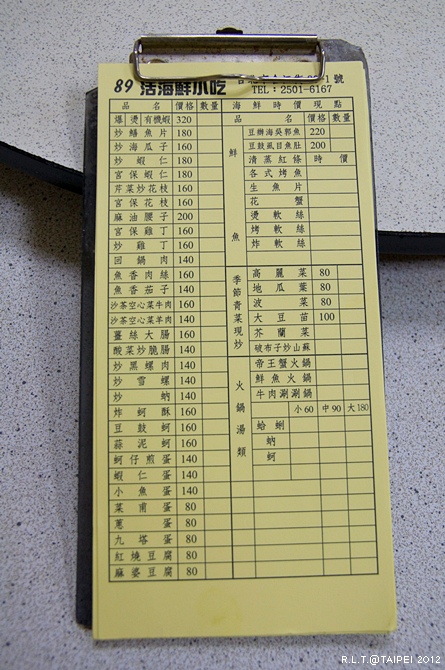 89 活海鮮小吃
1 號
TEL：2501-6167
品 名 價格 數量
爆 燙 有機蝦 320
炒 鱔 魚 片 180
炒 海 瓜 子 160
炒 蝦 仁 180
宮 保 蝦 仁 180
芹 菜 炒 花 枝 160
宮 保 花 枝 160
麻 油 腰 子 200
宮 保 雞 丁 160
炒 雞 丁 160
回 鍋 肉 140
魚 香 肉 絲 160
魚 香 茄 子 140
沙茶空心菜牛肉 160
沙茶空心菜羊肉 140
薑 絲 大 腸 160
酸 菜 炒 脆 腸 140
炒 黑 螺 肉 160
炒 雪 螺 140
炒 蚋 140
炸 蚵 酥 160
豆 鼓 蚵 160
蒜 泥 蚵 160
蚵 仔 煎 蛋 140
蝦 仁 蛋 140
小 魚 蛋 140
菜 甫 蛋 80
蔥 蛋 80
九 塔 蛋 80
紅 燒 豆 腐 80
麻 婆 豆 腐 80
海 鮮 時 價 現 點
品 名 價格 數量
鮮 魚
豆瓣海葵郭魚 220
豆鼓虱目魚肚 200
清 蒸 紅 條 時 價
各 式 烤 魚
生 魚 片
花 蟹
燙 軟 絲
烤 軟 絲
炸 軟 絲
季節青菜現炒
高 麗 菜 80
地 瓜 葉 80
波 菜 80
大 豆 苗 100
芥 蘭 菜
破布子炒山蘇
火 鍋 湯 類
帝 王 蟹 火 鍋
鮮 魚 火 鍋
牛 肉 涮 涮 鍋
小 60 中 90 大 180
蛤 蜊
蚋
蚵
R.L.T.@TAIPEI 2012